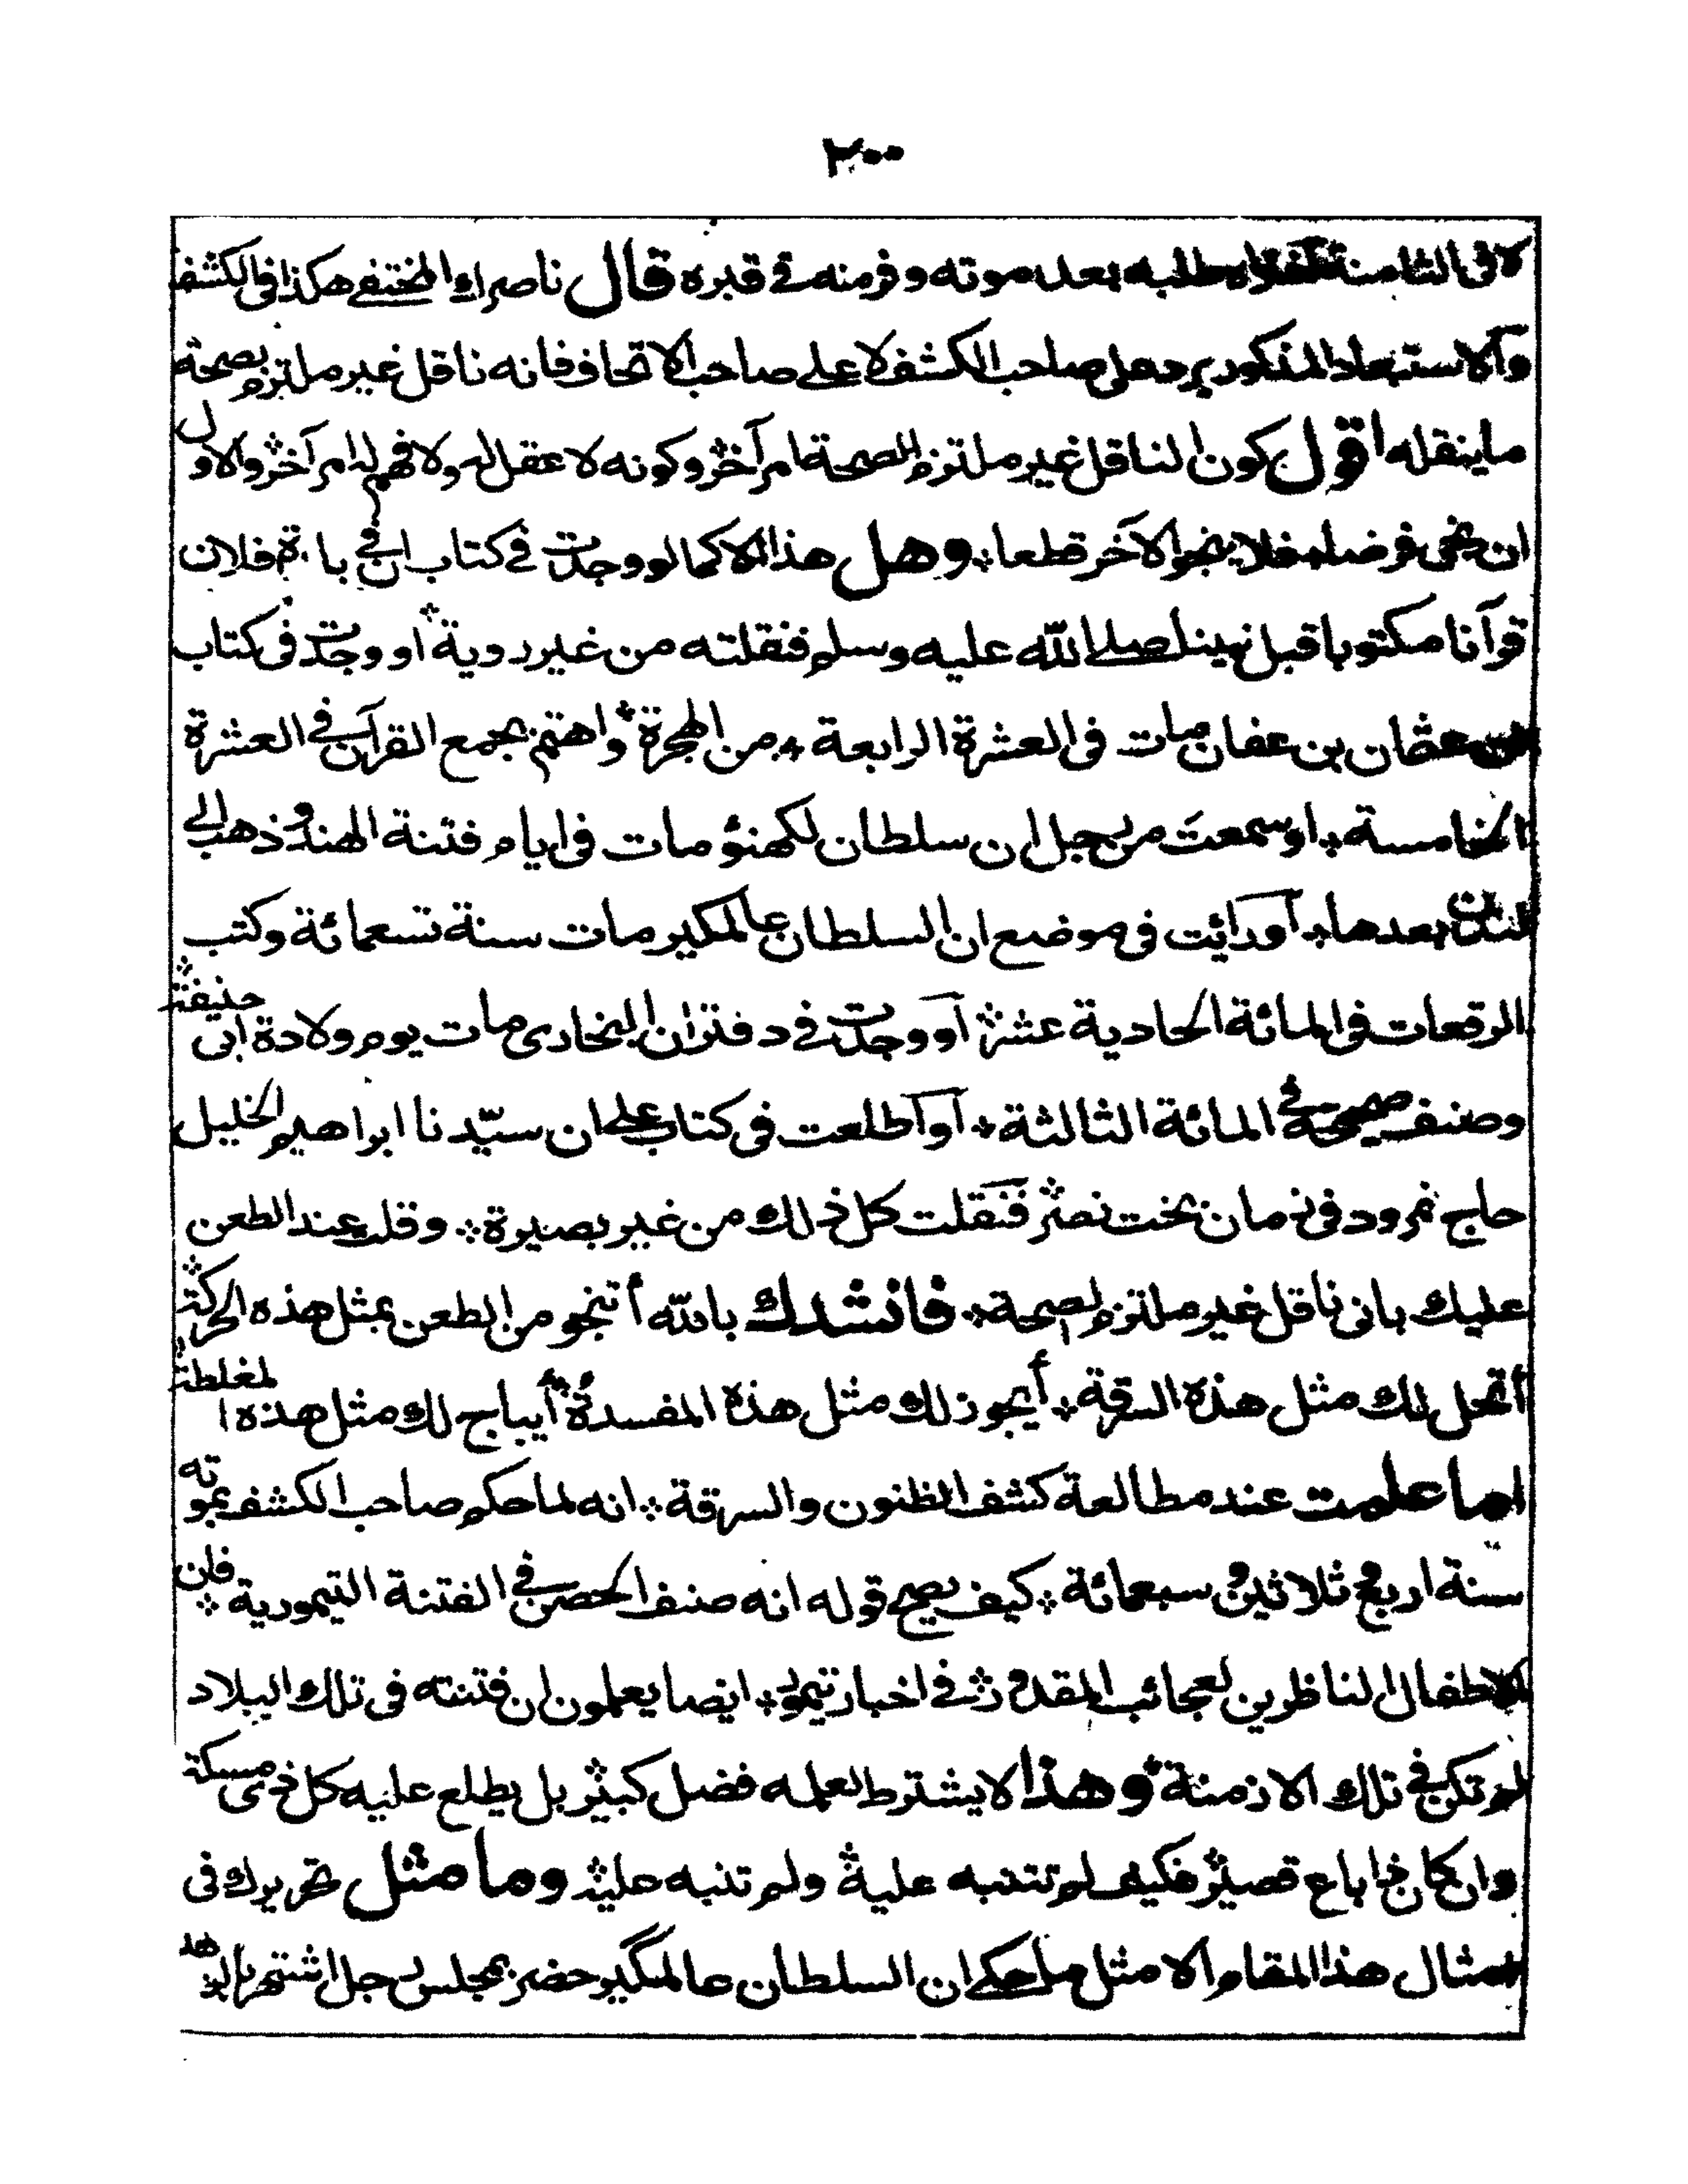 ٢٠٠
لا فى الثامنة طلبه بعد موته وفر منه فى قبره قال ناصراو المختفى هكذا فى الكشف
والاستبعاد المذكور يرد على صاحب الكشف لا على صاحب الاتحاف فانه ناقل غير ملتزم بصحة
ما ينقله اقول كون الناقل غير ملتزم الصحة امر آخر وكونه لا عقل له ولا فهم له امر آخر والاول
ان نجى فرضا فلا ينجو الآخر قطعا وهل هذا الا كما لو وجدت فى كتاب انى فلان
قرآنا مكتوبا قبل نبينا صلى الله عليه وسلم فنقلته من غير روية او وجدت فى كتاب
عثمان بن عفان مات فى العشرة الرابعة من الهجرة واهتم بجمع القرآن فى العشرة
الخامسة او سمعت من رجل ان سلطان لكهنؤ مات فى ايام فتنة الهند وذهب الى
لندن بعدها آو رائت فى موضع ان السلطان عالمكير مات سنة تسعمائة وكتب
الرقعات فى المائة الحادية عشر آو وجدت فى دفتر ان البخارى مات يوم ولادة ابى حنيفة
وصنف صحيحه فى المائة الثالثة آو آطلعت فى كتاب على ان سيّدنا ابراهيم الخليل
حاج نمرود فى زمان بخت نصر فنقلت كل ذلك من غير بصيرة وقلت عند الطعن
عليك بانى ناقل غير ملتزم لصحة فانشدك بالله أتنجو من الطعن بمثل هذه الحركة
أتحل لك مثل هذه السرقة أيجوز لك مثل هذة المفسدة أيباح لك مثل هذه المغلطة
اما علمت عند مطالعة كشف الظنون والسرقة انه لما حكم صاحب الكشف بموته
سنة اربع وثلاثين وسبعمائة كيف يصح قوله انه صنف الحصن فى الفتنة التيمورية فان
الاطفال الناظرين لعجائب المقدور فى اخبار تيمور ايضا يعلمون ان فتنته فى تلك البلاد
لم تكن فى تلك الازمنة وهذا لا يشترط لعلمه فضل كبير بل يطلع عليه كل ذى مسكة
وان كان ذا باع قصير فكيف لم تتنبه عليه ولم تنبه عليه وما مثل تحريرك فى
امثال هذا المقام الا مثل ما حكى ان السلطان عالمگير حضر بمجلس رجل اشتهر بالزهد